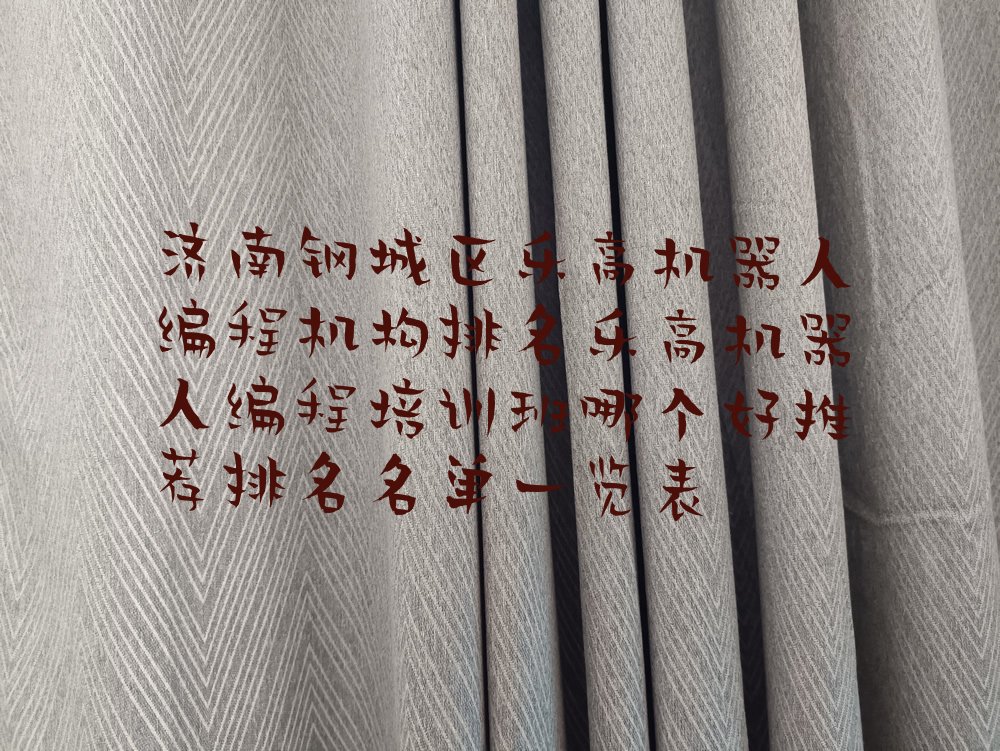 济南钢城区乐高机器人
编程机构排名乐高机器
人编程培训班哪个好推
荐排名名单一览表